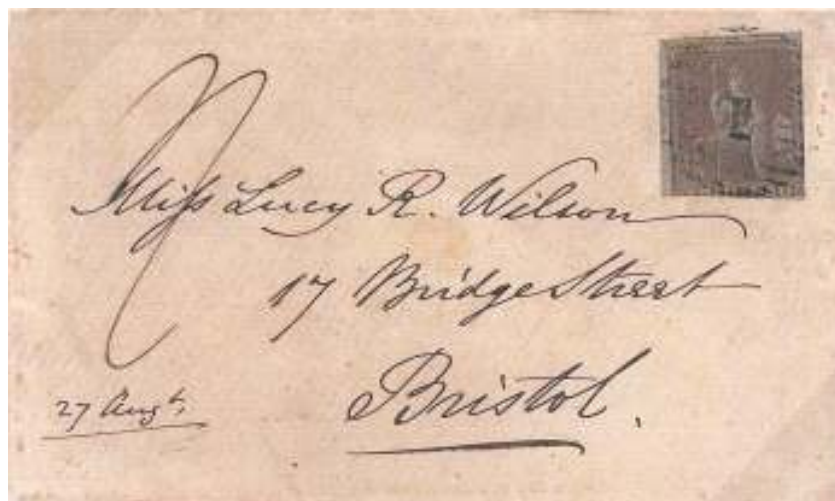 Miss Lucy R. Wilson
17 Bridge Street
Bristol.
27 Augt.